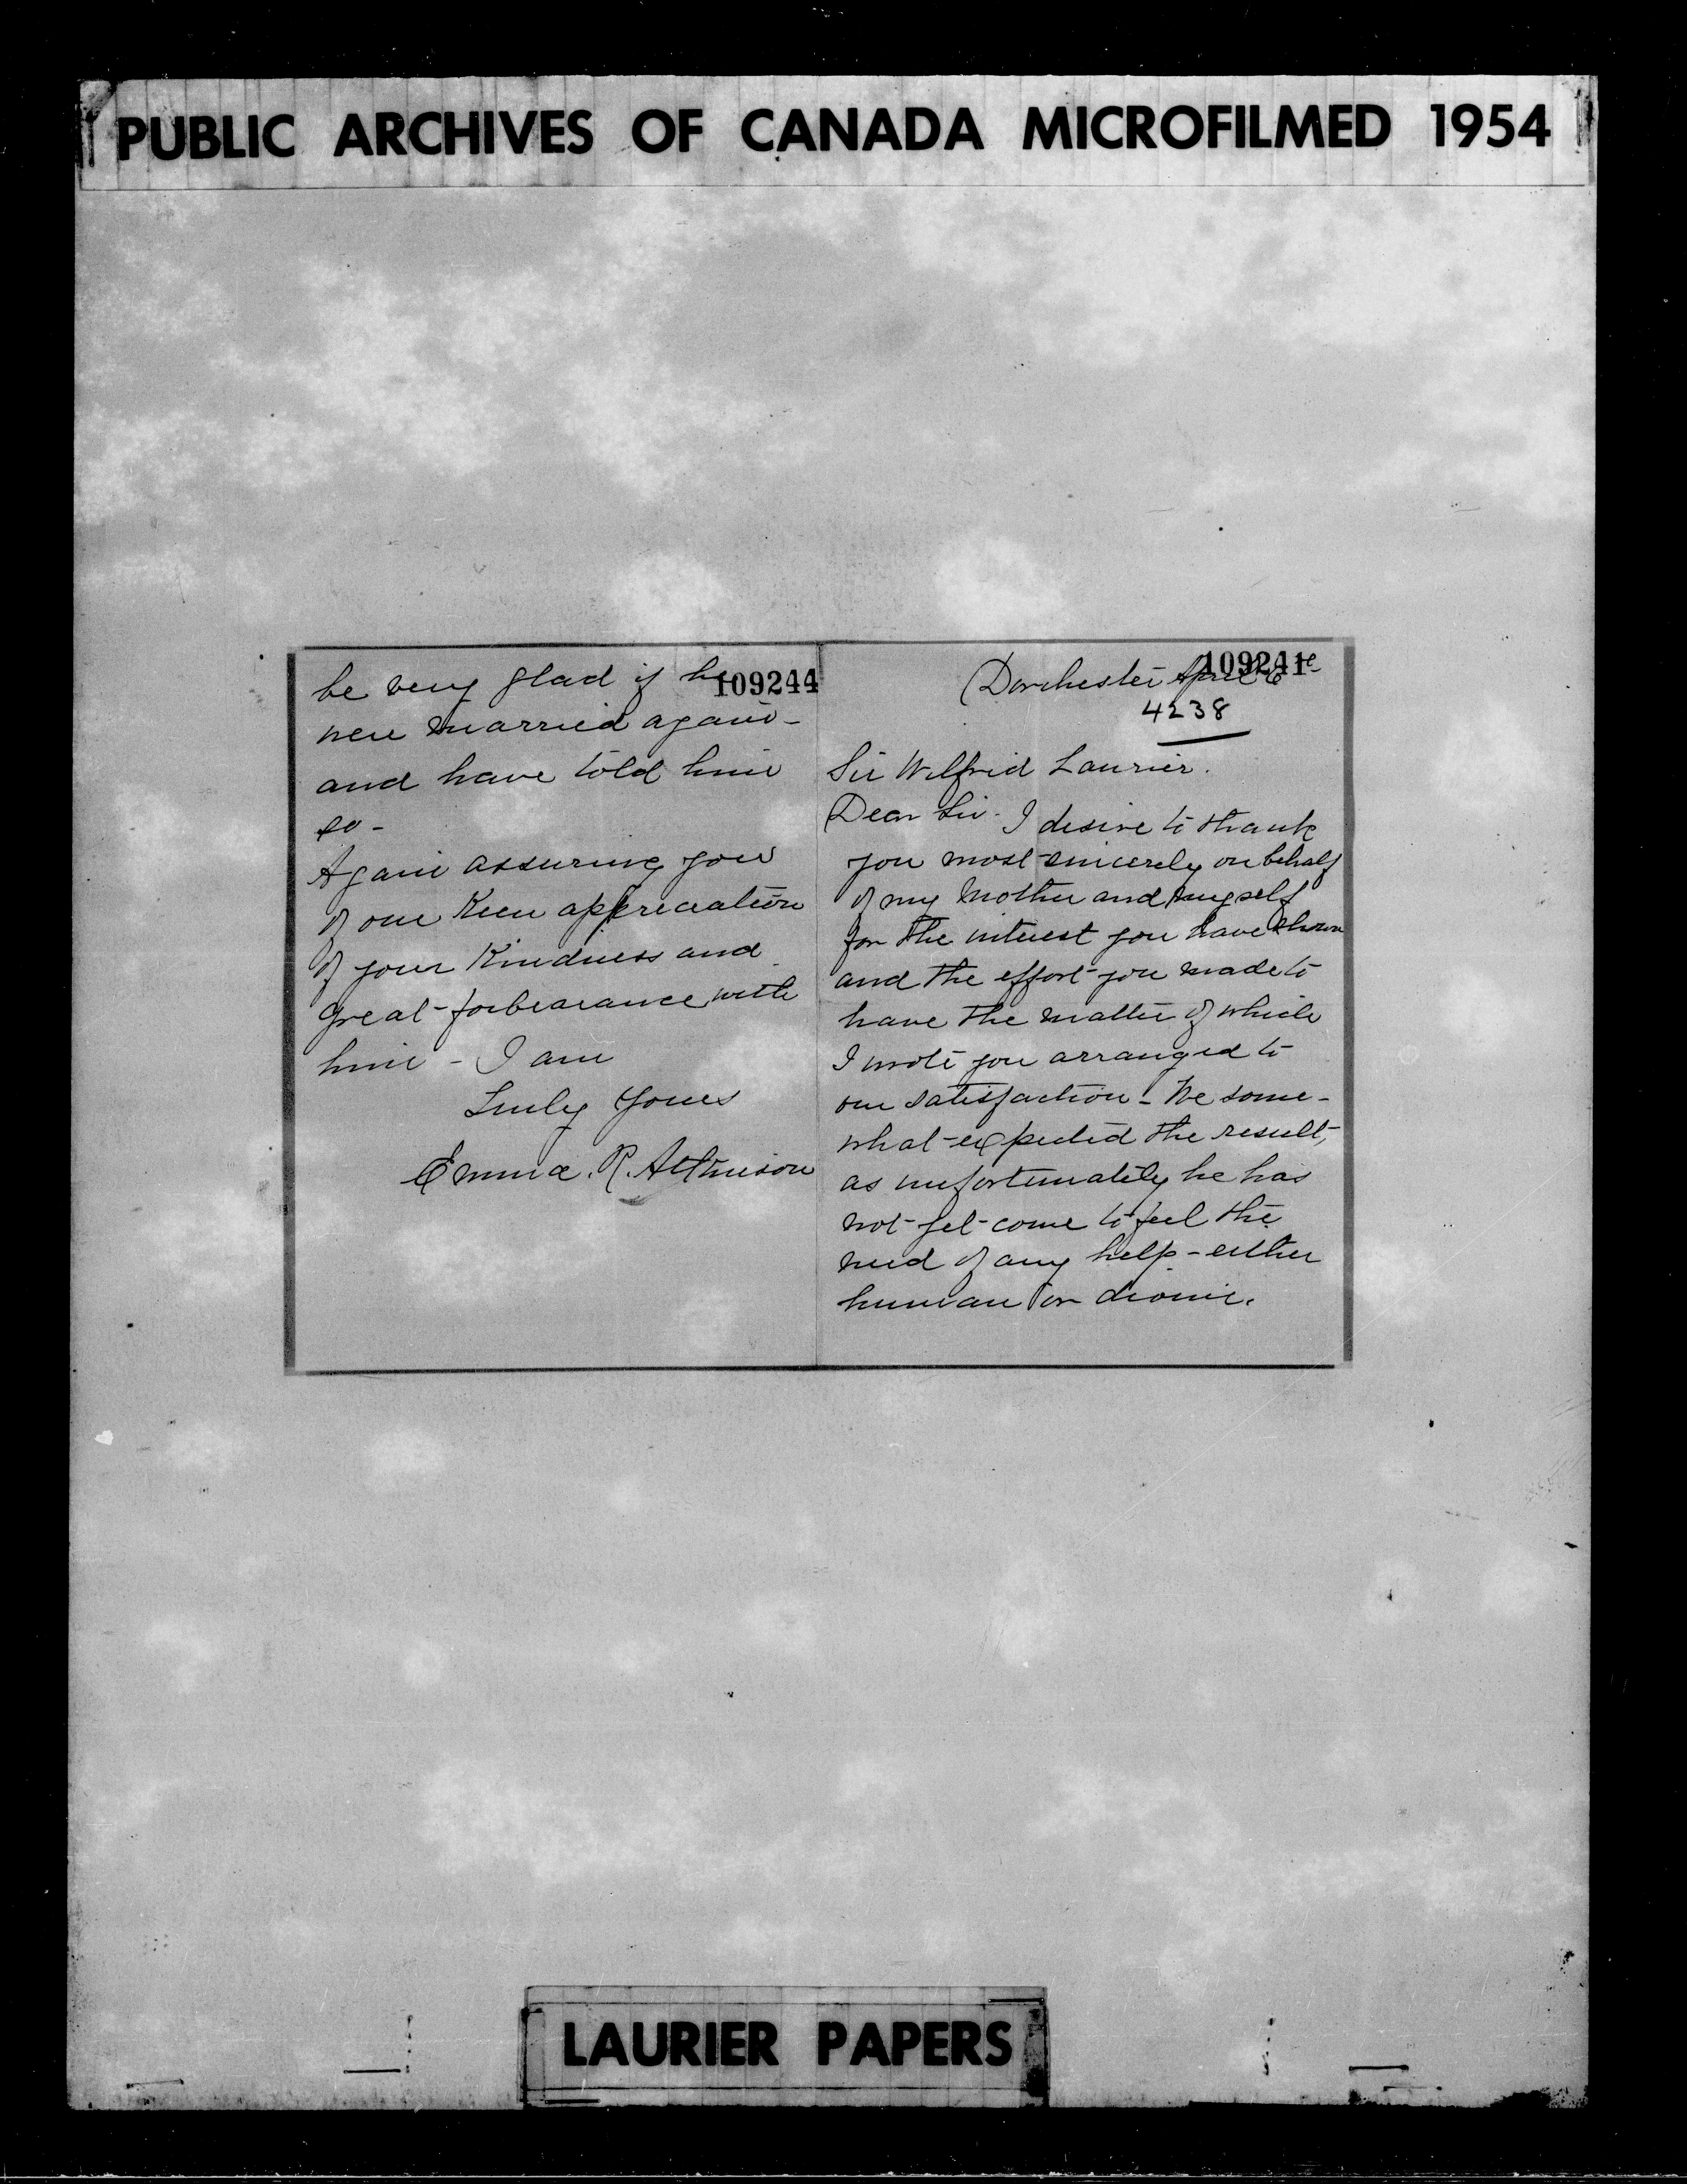 PUBLIC ARCHIVES OF CANADA MICROFILMED 1954
109244
be very glad if he
were married again -
and have told him
so -
Again assuring you
of our Keen appreciation
of your Kindness and
great forbearance with
him - I am
Truly Yours
Emma. R. Atkinson
109241
Dorchester April 6
4238
Sir Wilfrid Laurier.
Dear Sir. I desire to thank
you most sincerely on behalf
of my Mother and myself
for the interest you have shown
and the effort you made to
have the matter of which
I wrote you arranged to
our satisfaction - We some-
what expected the result,
as unfortunately he has
not yet come to feel the
need of any help - either
human or divine.
LAURIER PAPERS